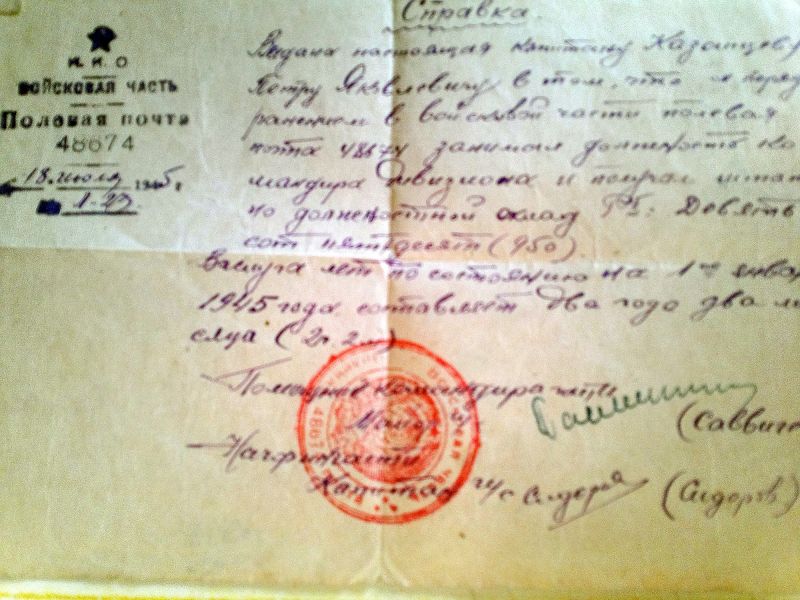 Справка
Н. К. О
ВОЙСКОВАЯ ЧАСТЬ
Полевая почта
48674
18. июля 1945 г.
1-23
Выдана настоящая капитану Казанцеву
Петру Яковлевичу в том, что он перед
в войсковой части полевая
почта 48674 занимал должность ко
мандира Дивизиона и получал штат
но должностной оклад Девять
сот пятьдесят (950).
Выслуга лет по состоянию на 1ое январ
1945 года составляет два года два ме
сяца (2г. 2м)
Помощник командира части
Майор
(Савви
Начфинчасти
Капитан и/с Сидоров
(Сидоров)